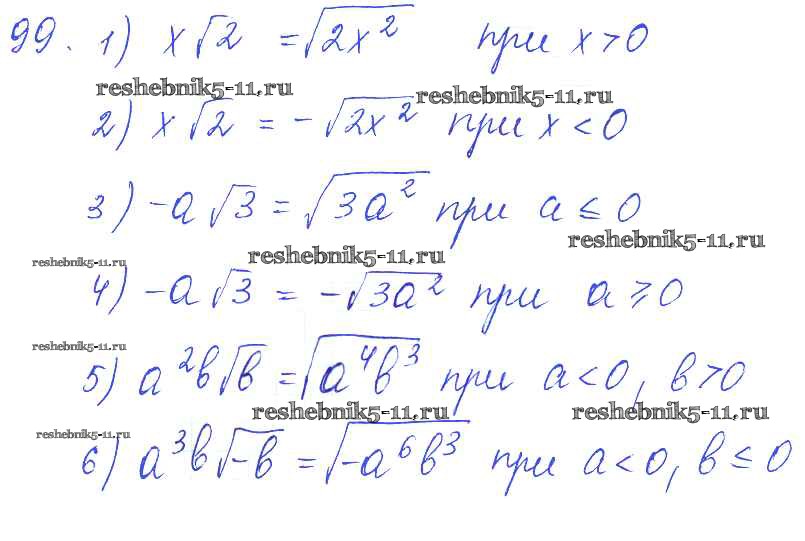 99. 1) x√2 = √2x² при x>0
reshebnik5-11.ru
reshebnik5-11.ru
2) x√2 = -√2x² при x<0
3) -a√3 = √3a² при a≤0
reshebnik5-11.ru
reshebnik5-11.ru
reshebnik5-11.ru
4) -a√3 = -√3a² при a≥0
reshebnik5-11.ru
5) a²b√b = √a⁴b³ при a<0, b>0
reshebnik5-11.ru
reshebnik5-11.ru
reshebnik5-11.ru
6) a³b√-b = √-a⁶b³ при a<0, b≤0